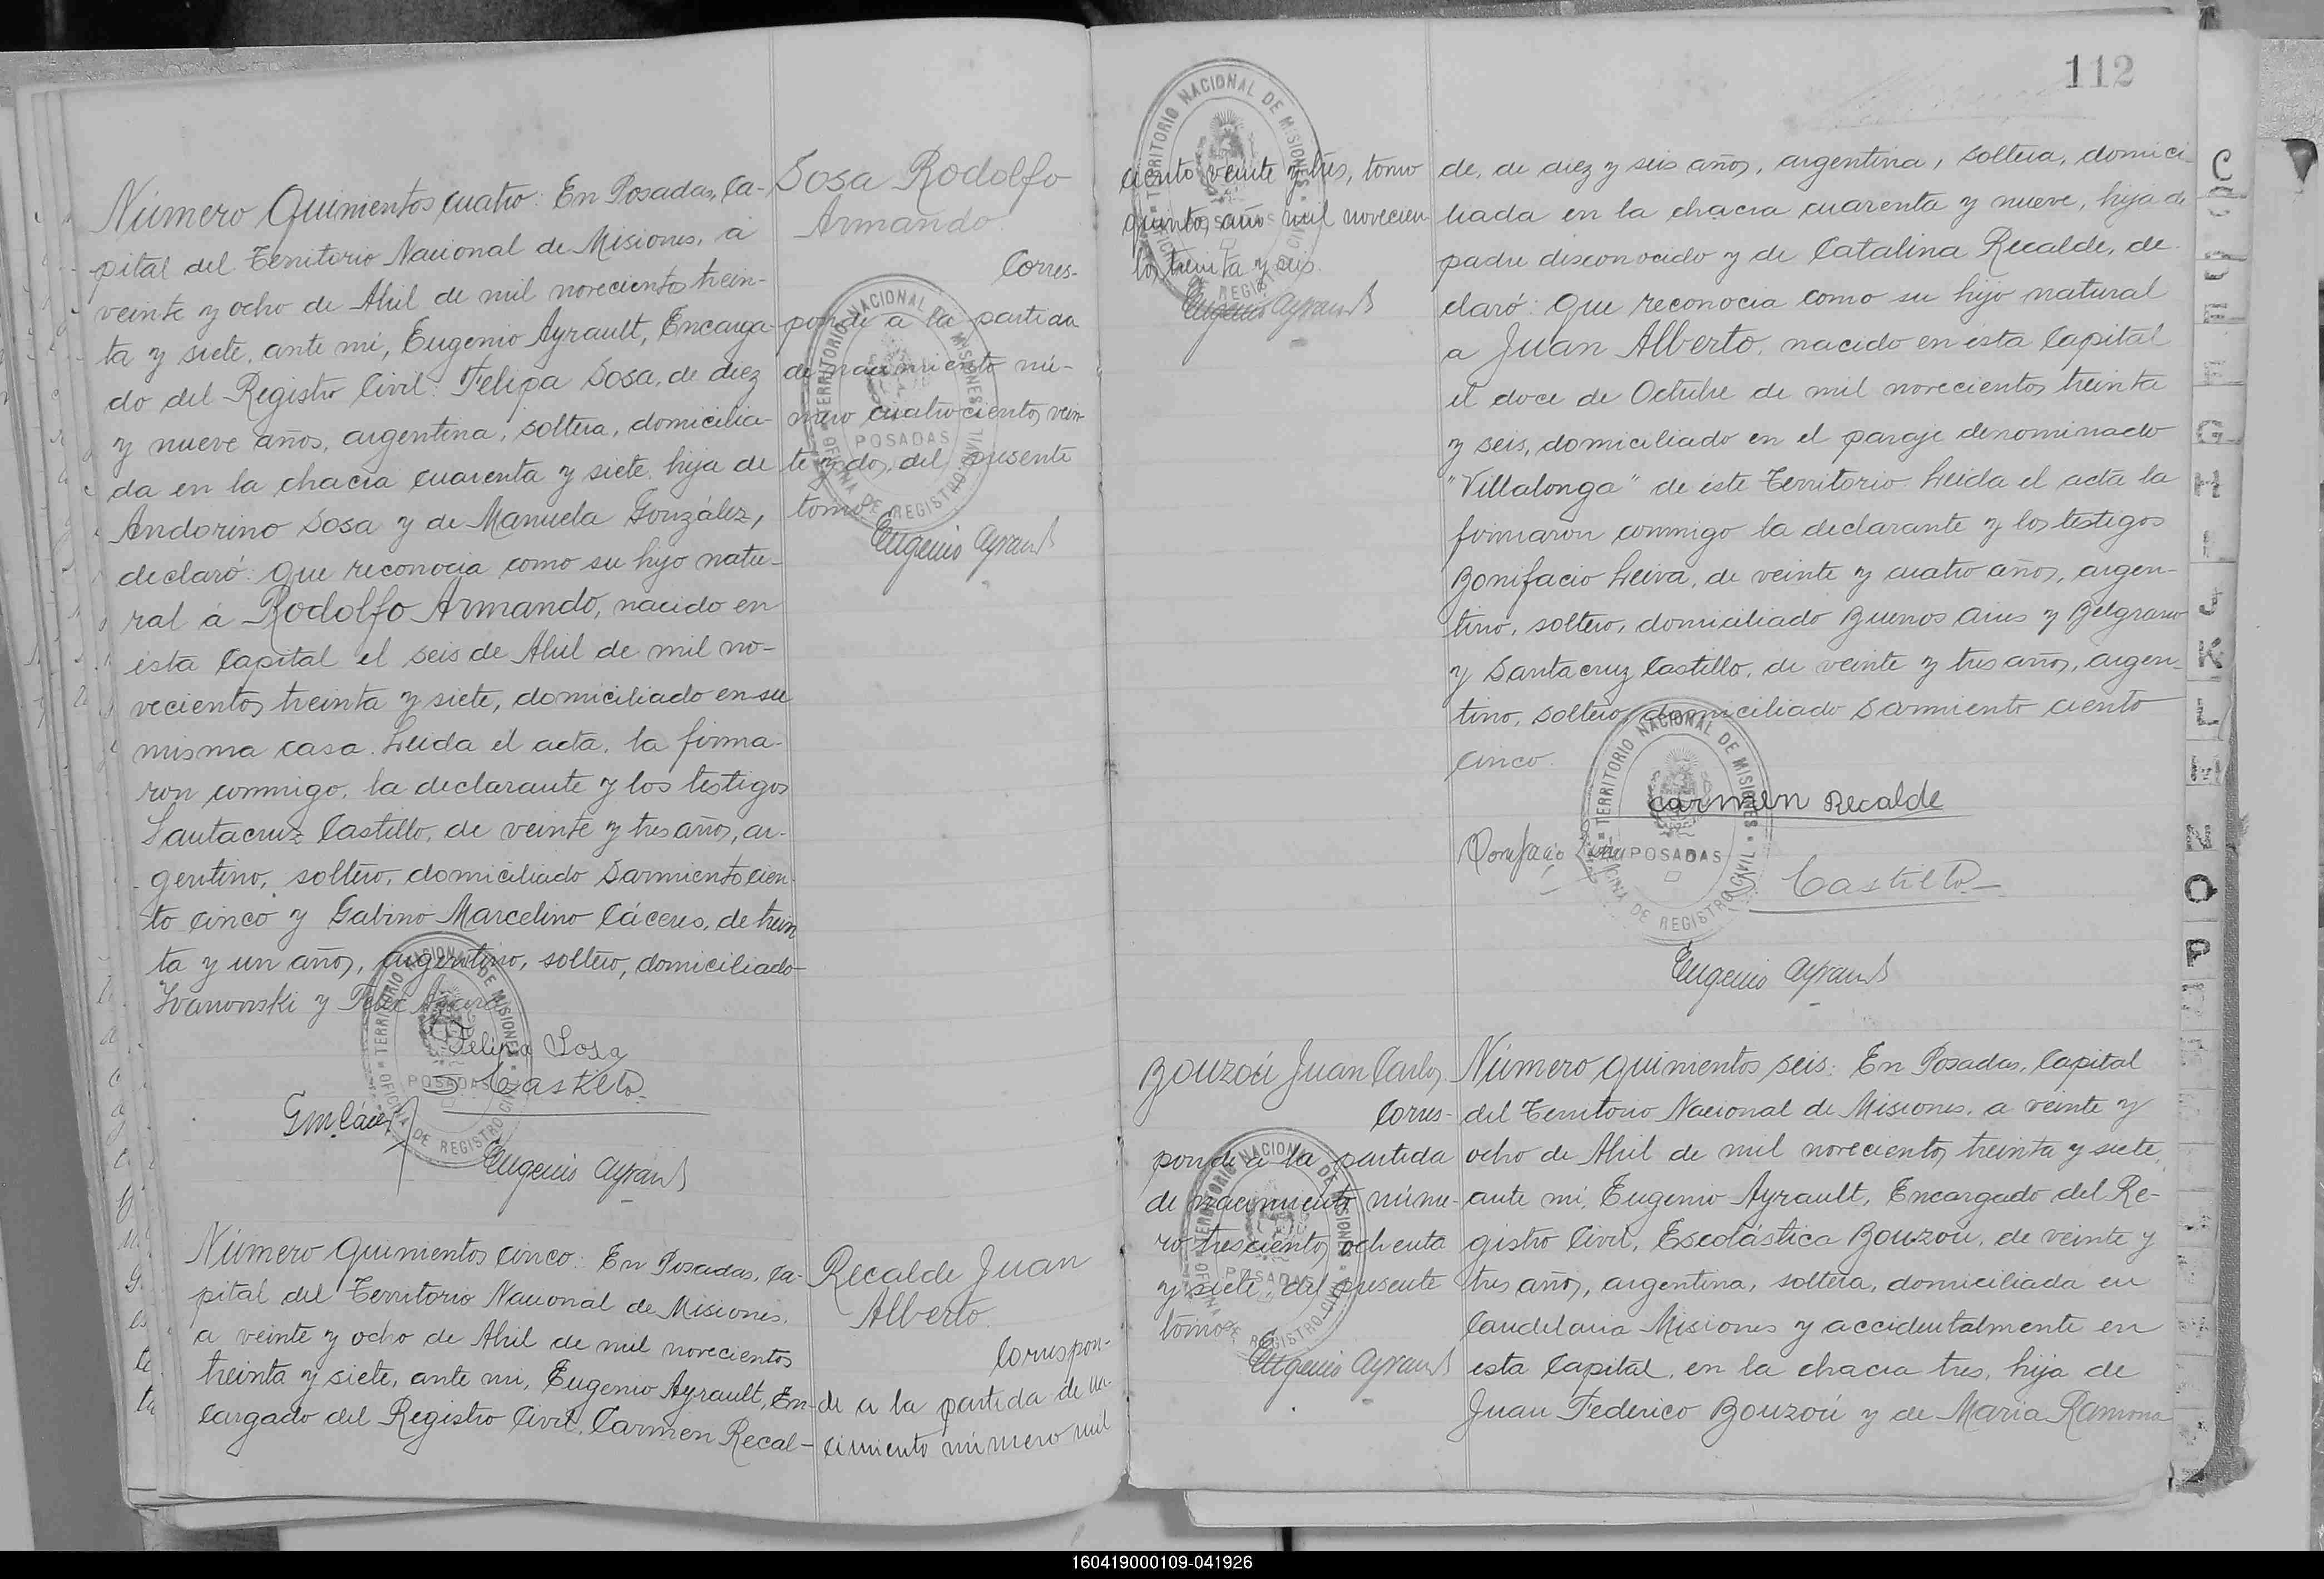 Número Quinientos cuatro: En Posadas, Ca-
pital del Territorio Nacional de Misiones, á
veinte y ocho de Abril de mil novecientos trein-
ta y siete, ante mi, Eugenio Ayrault, Encarga-
do del Registro Civil: Felipa Sosa, de diez
y nueve años, argentina, soltera, domicilia-
da en la chacra cuarenta y siete, hija de
Andorino Sosa y de Manuela González,
declaró: Que reconocia como su hijo natu-
ral á Rodolfo Armando, nacido en
esta Capital el seis de Abril de mil no-
vecientos treinta y siete, domiciliado en su
misma casa. Leida el acta, la firma-
ron conmigo, la declarante y los testigos
Santacruz Castillo, de veinte y tres años, ar-
gentino, soltero, domiciliado Sarmiento cien-
to cinco y Gabino Marcelino Cáceres, de trein
ta y un años, argentino, soltero, domiciliado
Ivanowski y Felix
Felipa Sosa
S Castillo
GmCácer
Eugenio Ayrault
Sosa Rodolfo
Armando
Corres-
ponde a la partida
de nacimiento nú-
mero cuatrocientos vein-
te y dos, del presente
tomo
Eugenio Ayrault
TERRITORIO NACIONAL DE MISIONES
POSADAS
OFICINA DE REGISTRO CIVIL
Número quinientos cinco: En Posadas, Ca-
pital del Territorio Nacional de Misiones,
a veinte y ocho de Abril de mil novecientos
treinta y siete, ante mi, Eugenio Ayrault, En-
cargado del Registro Civil, Carmen Recal-
Recalde Juan
Alberto.
Correspon-
de a la partida de na-
cimiento número mil
112
ciento veinte y tres, tomo
quinto, año mil novecien
tos treinta y seis.
Eugenio Ayrault
de, de diez y seis años, argentina, soltera, domici-
liada en la chacra cuarenta y nueve, hija de
padre disconocido y de Catalina Recalde, de
claró: Que reconocia como su hijo natural
a Juan Alberto, nacido en esta Capital
el doce de Octubre de mil novecientos treinta
y seis, domiciliado en el paraje denominado
"Villalonga" de este Territorio. Leida el acta la
firmaron conmigo la declarante y los testigos
Bonifacio Leiva, de veinte y cuatro años, argen-
tino, soltero, domiciliado Buenos Aires y Belgrano
y Santacruz Castillo, de veinte y tres años, argen-
tino, soltero, domiciliado Sarmiento ciento
cinco.
Carmen Recalde
Bonifacio Leiva
Castillo
Eugenio Ayrault
TERRITORIO NACIONAL DE MISIONES
POSADAS
OFICINA DE REGISTRO CIVIL
Bouzoú Juan Carlos.
Corres-
ponde a la partida
de nacimiento núme-
ro trescientos ochenta
y siete, del presente
tomo
Eugenio Ayrault
Número quinientos seis: En Posadas, Capital
del Territorio Nacional de Misiones, a veinte y
ocho de Abril de mil novecientos treinta y siete,
ante mi, Eugenio Ayrault, Encargado del Re-
gistro Civil, Escolástica Bouzoú, de veinte y
tres años, argentina, soltera, domiciliada en
Candelaria Misiones y accidentalmente en
esta Capital, en la chacra tres, hija de
Juan Federico Bouzoú y de Maria Ramona
C
E
F
G
H
I
J
K
L
M
N
O
P
160419000109-041926